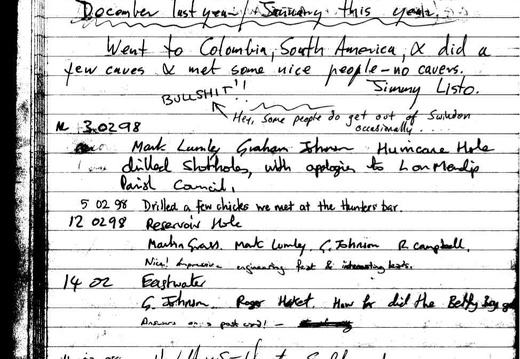 December last year / January this year.
Went to Colombia, South America, & did a
few caves & met some nice people - no cavers.
Jimmy Listo.
BULLSHIT!!
Hey, some people do get out of Swildon
occasionally.
3.0298
Mark Lumley Graham Johnson Hurricane Hole
drilled Shotholes, with apologies to
Parish Council.
5 02 98 Drilled a few chicks we met at the Hunters bar.
12 0298 Reservoir Hole
Martin Grass. Mark Lumley. G. Johnson R. Campbell.
Nice! Impressive engineering feat & interesting
14 02 Eastwater
G. Johnson. Roger How far did the Betty Boys
Answers on a post card! -